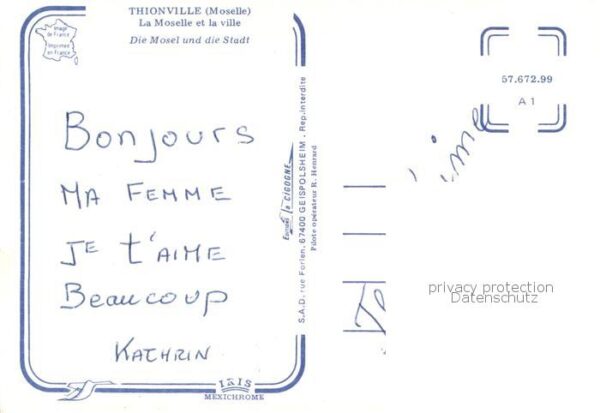 THIONVILLE (Moselle)
La Moselle et la ville
Die Mosel und die Stadt
Image
de France
Imprimée
en France
Bonjours
MA FEMME
JE t'AIME
Beaucoup
KATHRIN
IRIS
MEXICHROME
Editions la CIGOGNE
S.A.D. rue Forlen, 67400 GEISPOLSHEIM - Rep. interdite
Pilote opérateur R. Henrard
57.672.99
A 1
privacy protection
Datenschutz